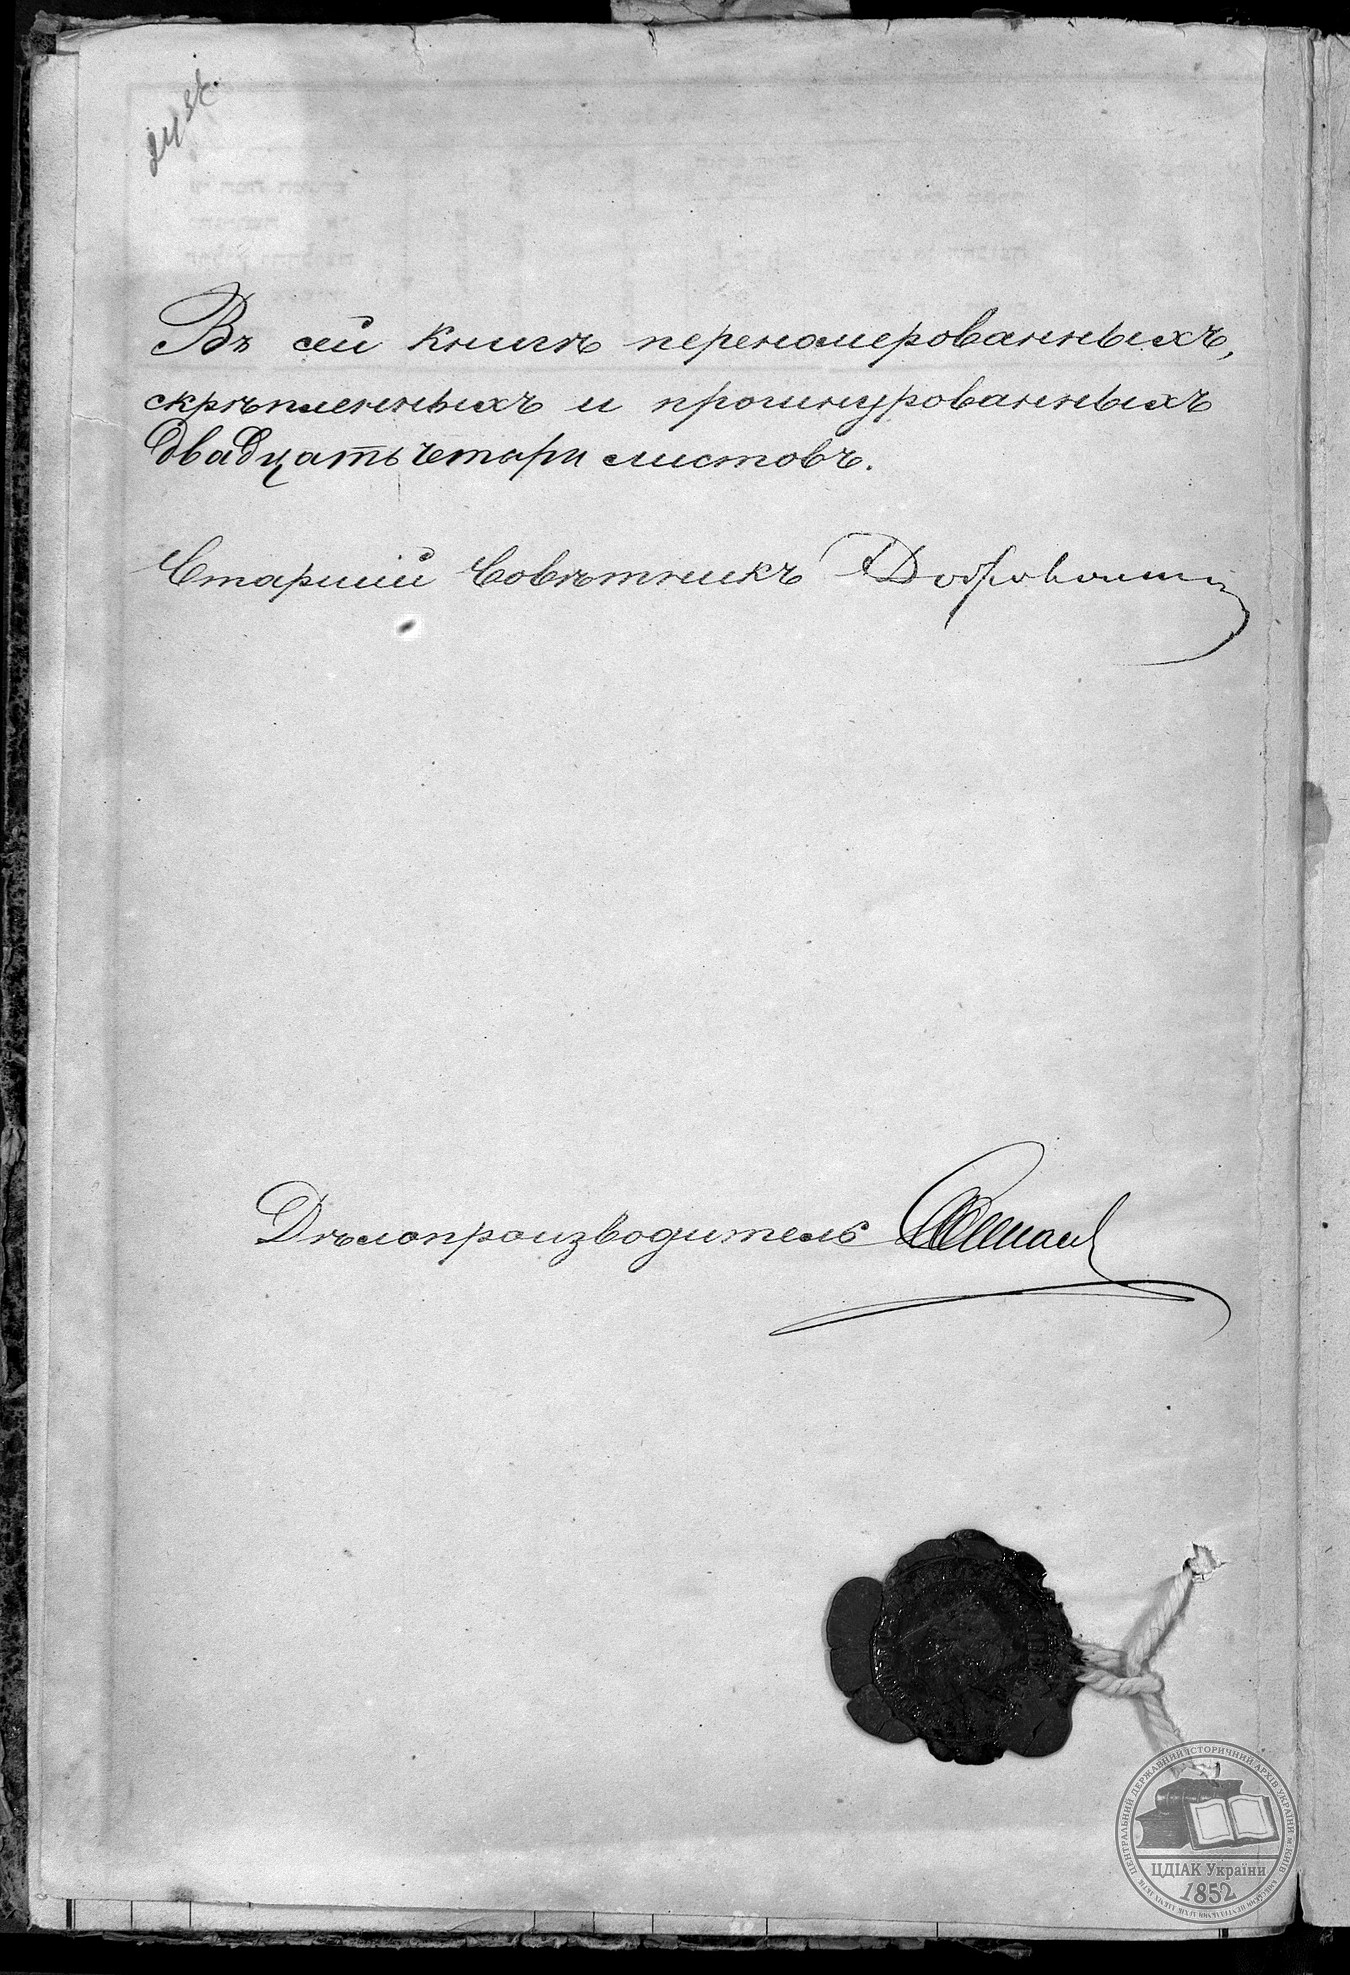 24
Въ сей книгѣ перенолерованныхъ,
скрѣпленныхъ и прошнурованныхъ
двадцать четыри листовъ.
Старшій Совѣтникъ
Дѣлопроизводитель
ЦЕНТРАЛЬНИЙ ДЕРЖАВНИЙ ІСТОРИЧНИЙ АРХІВ УКРАЇНИ м. КИЇВ
ЦДІАК України
1852